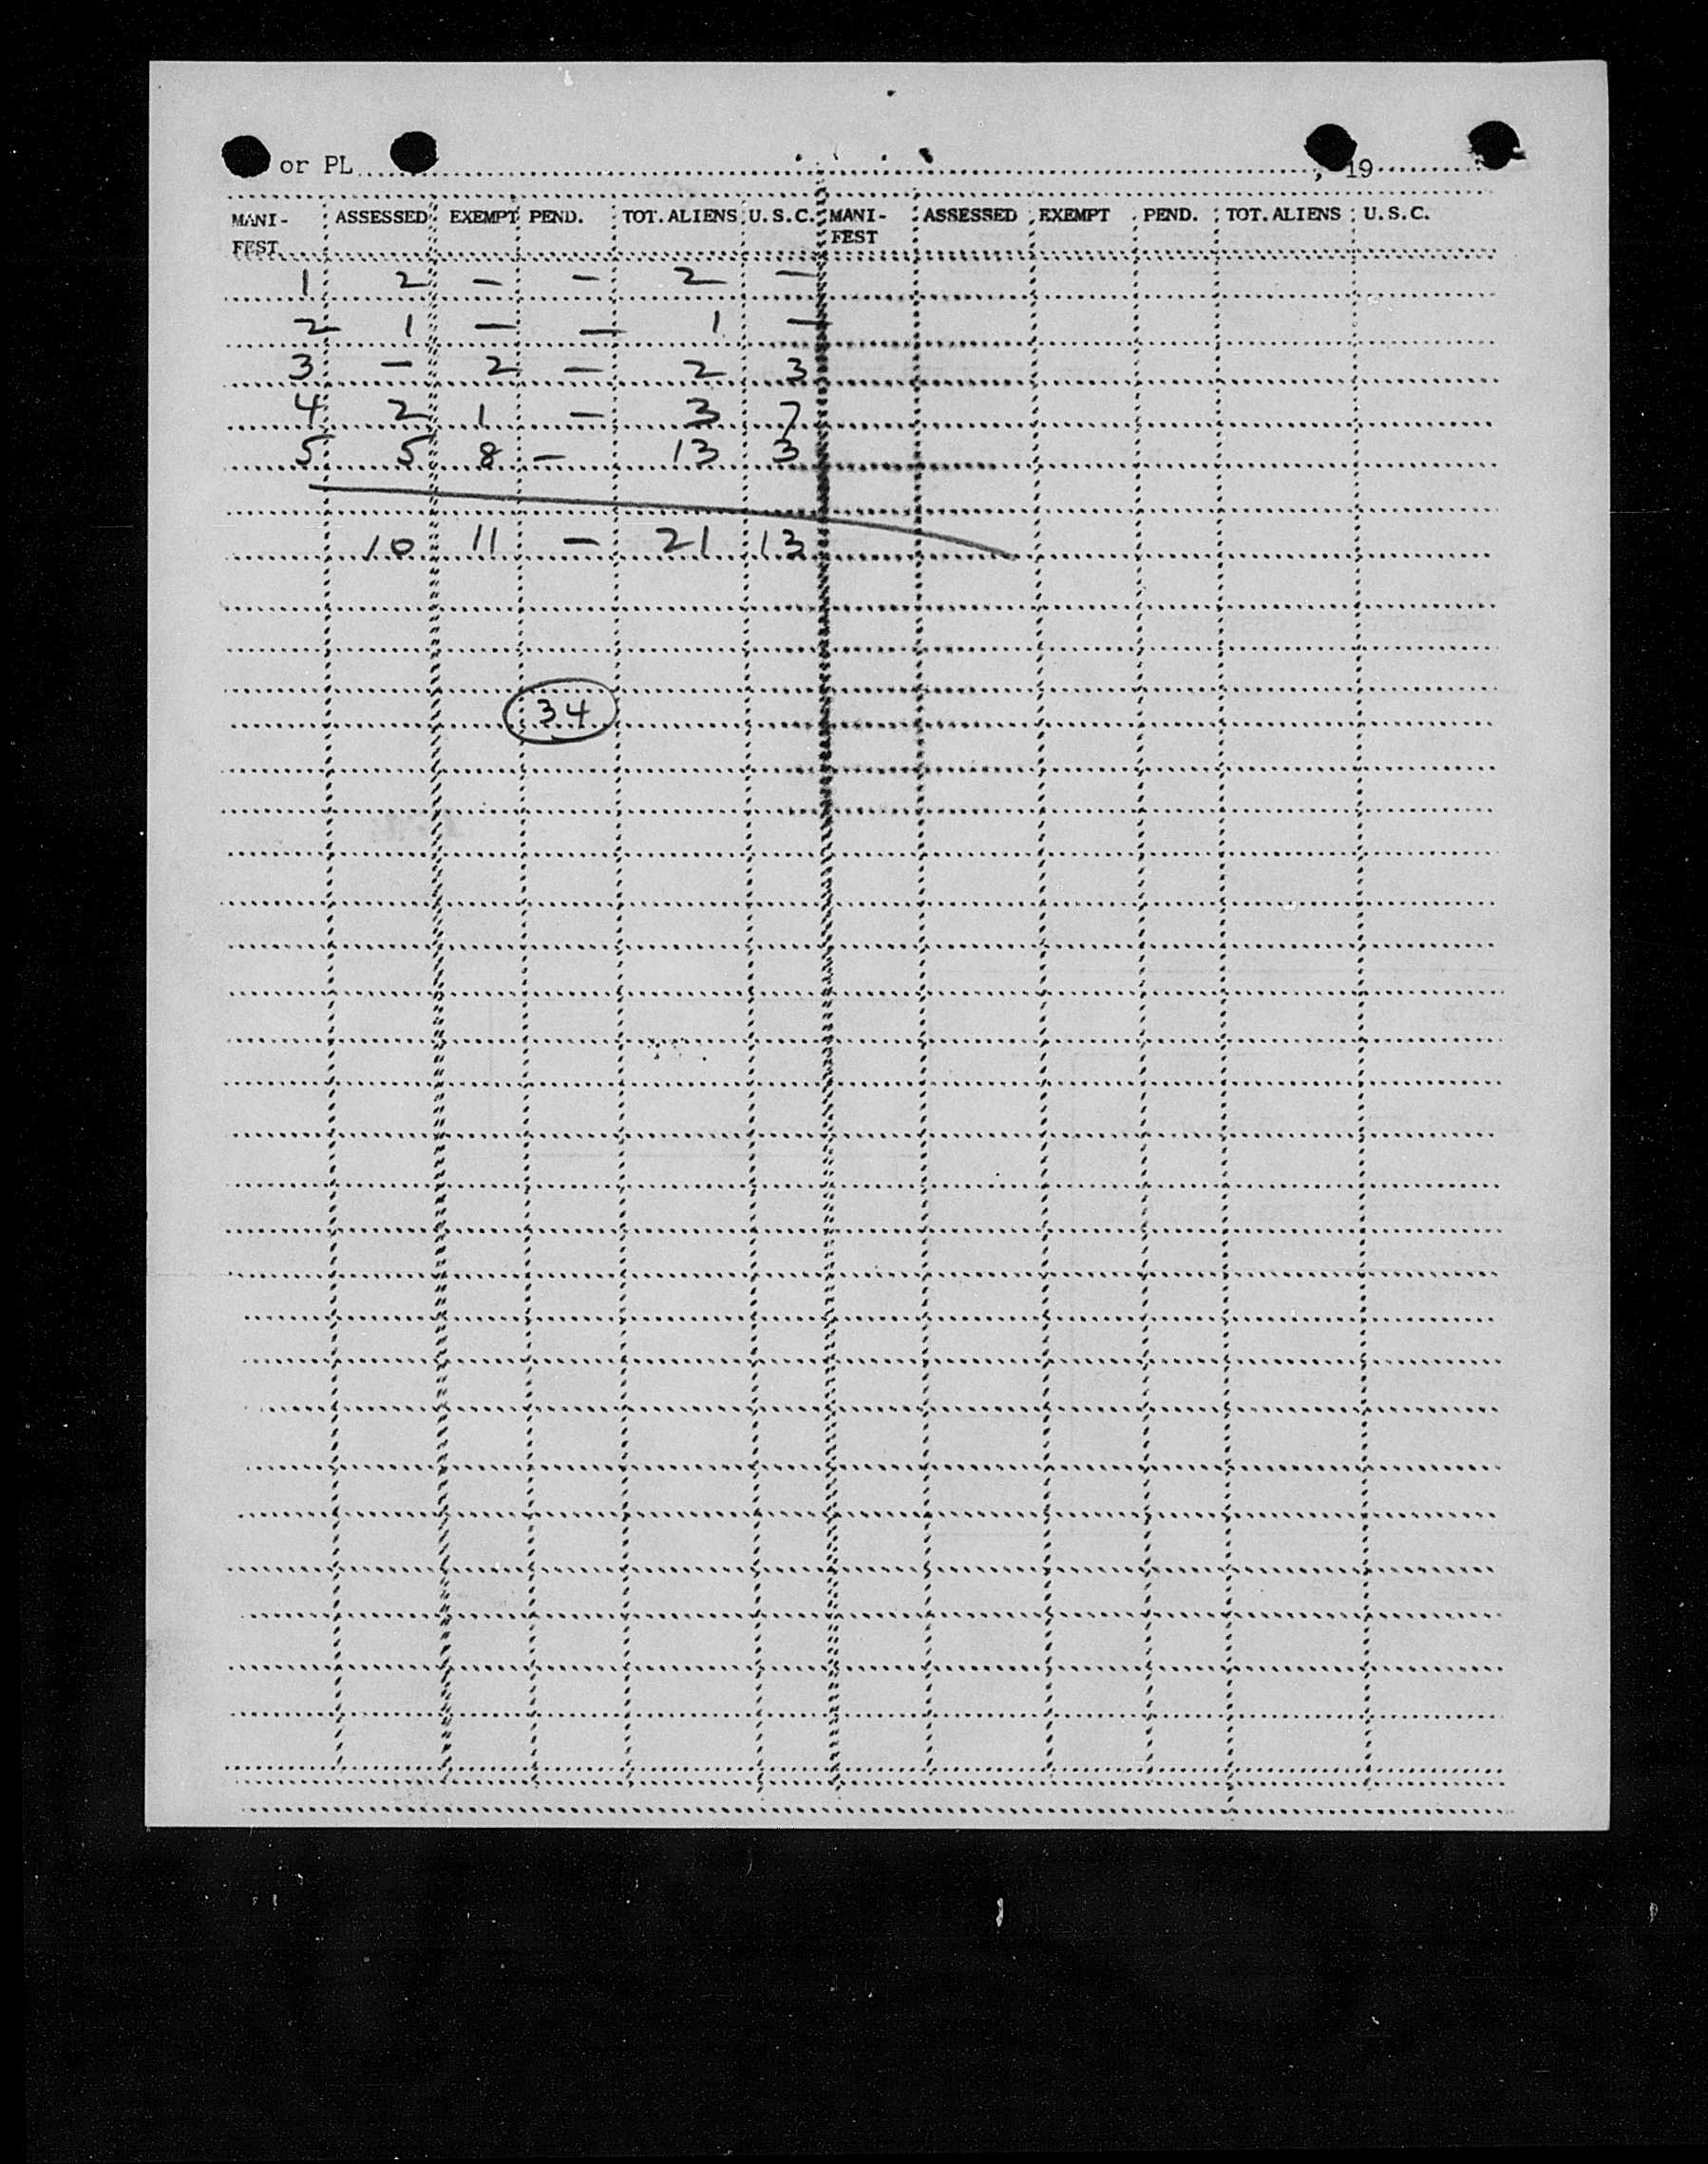 or PL , 19
MANI- ASSESSED EXEMPT PEND. TOT. ALIENS U.S.C. MANI- ASSESSED EXEMPT PEND. TOT. ALIENS U.S.C.
FEST FEST
1 2 - - 2 -
2 1 - - 1 -
3 - 2 - 2 3
4 2 1 - 3 7
5 5 8 - 13 3
10 11 - 21 13
34